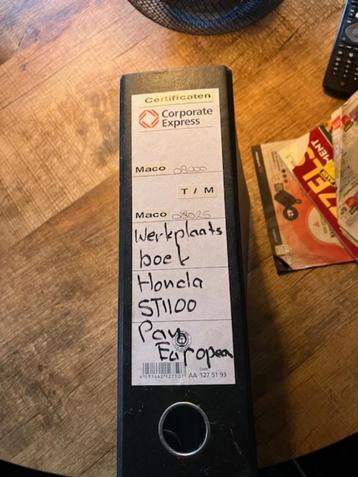 Certificaten
Corporate
Express
Maco 08000
T / M
Maco 08025
Werkplaats
boek
Honda
ST1100
Pan
European
AA 127 51 93